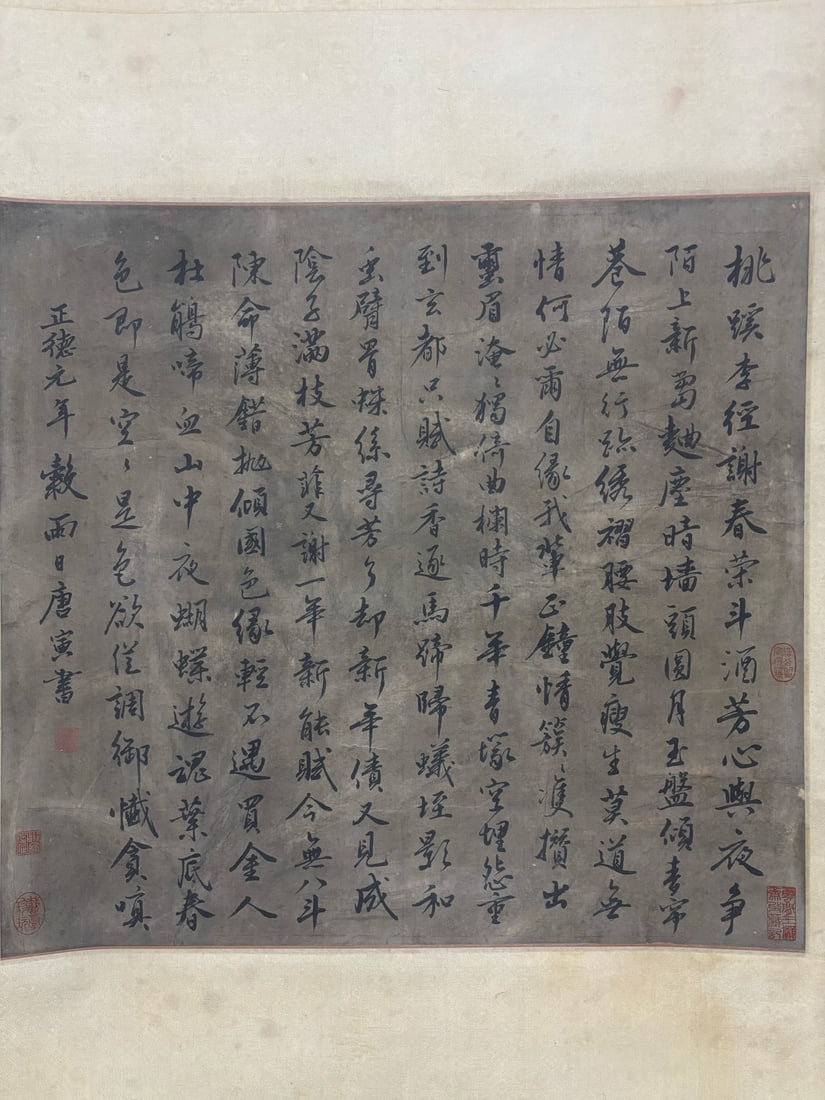 桃蹊李徑謝春榮斗酒芳心與夜爭
陌上新芻麯塵暗墻頭圓月玉盤傾青帘
巷陌無行跡綉褶腰肢覺瘦生莫道無
情何必爾自緣我輩正鐘情簇〻雙攢出
繭眉淹〻獨倚曲欄時千年青塚空埋怨重
到玄都只賦詩香逐馬蹄歸蟻垤影和
虫臂罥蛛絲尋芳了却新年債又見成
陰子滿枝芳菲又謝一年新能賦今無八斗
陳命薄錯拋傾國色緣輕不遇買金人
杜鵑啼血山中夜蝴蝶遊魂葉底春
色即是空〻是色欲從調御懺貪嗔
正德元年穀雨日唐寅書